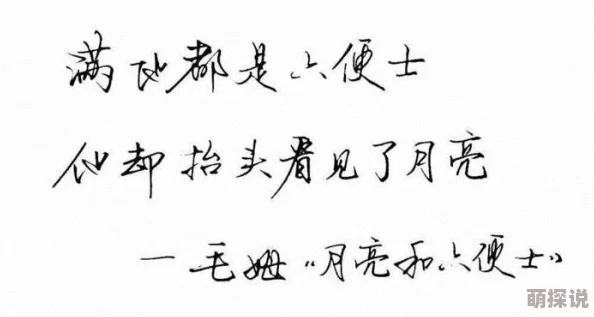 满地都是六便士
他却抬头看见了月亮
—毛姆“月亮和六便士”
萌探说